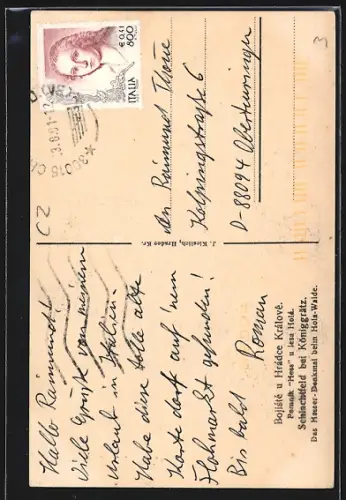 Hallo Raimund!
Viele Grüße von meinem
Urlaub in Italien.
Habe diese tolle alte
Karte dort auf 'nem
Flohmarkt gefunden!
Bis bald Roman
Bojiště u Hrádce Králové.
Pomník "Hess" u lesa Holá.
Schlachtfeld bei Königgrätz.
Das Heuser-Denkmal beim Hola-Walde.
J. Kästlich, Hradec Kr.
An Raimund Thoma
Kolpingstraße 6
D-88094 Oberteuringen
€ 0,41
800
ITALIA
CZ
3